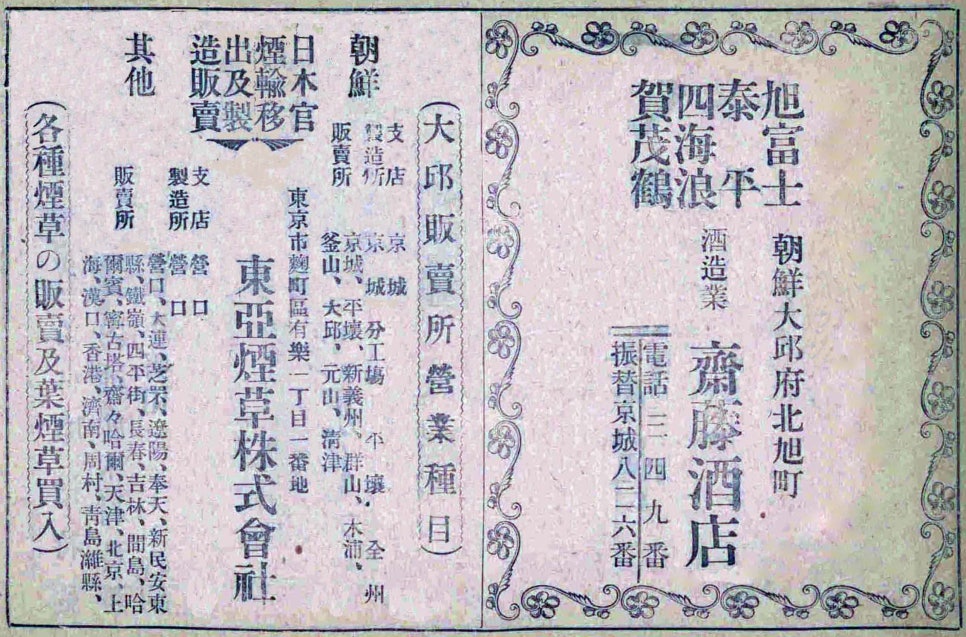 旭富士
泰平
四海浪
賀茂鶴
朝鮮大邱府北旭町
酒造業
齋藤酒店
電話三四九番
振替京城八二六番
(大邱販賣所營業種目)
朝鮮
支店 京城
製造所 京城 分工場 平壤、全州
販賣所 京城、平壤、新義州、群山、木浦、
釜山、大邱、元山、清津
日本官
煙輸移
出及製
造販賣
東京市麴町區有樂一丁目一番地
東亞煙草株式會社
其他
支店 營口
製造所 營口
販賣所
營口、大連、芝罘、遼陽、奉天、新民安東
縣、鐵嶺、四平街、長春、吉林、間島、哈
爾賓、寗古塔、齋々哈爾、天津、北京、上
海、漢口、香港、濟南、周村、青島濰縣、
(各種煙草の販賣及葉煙草買入)